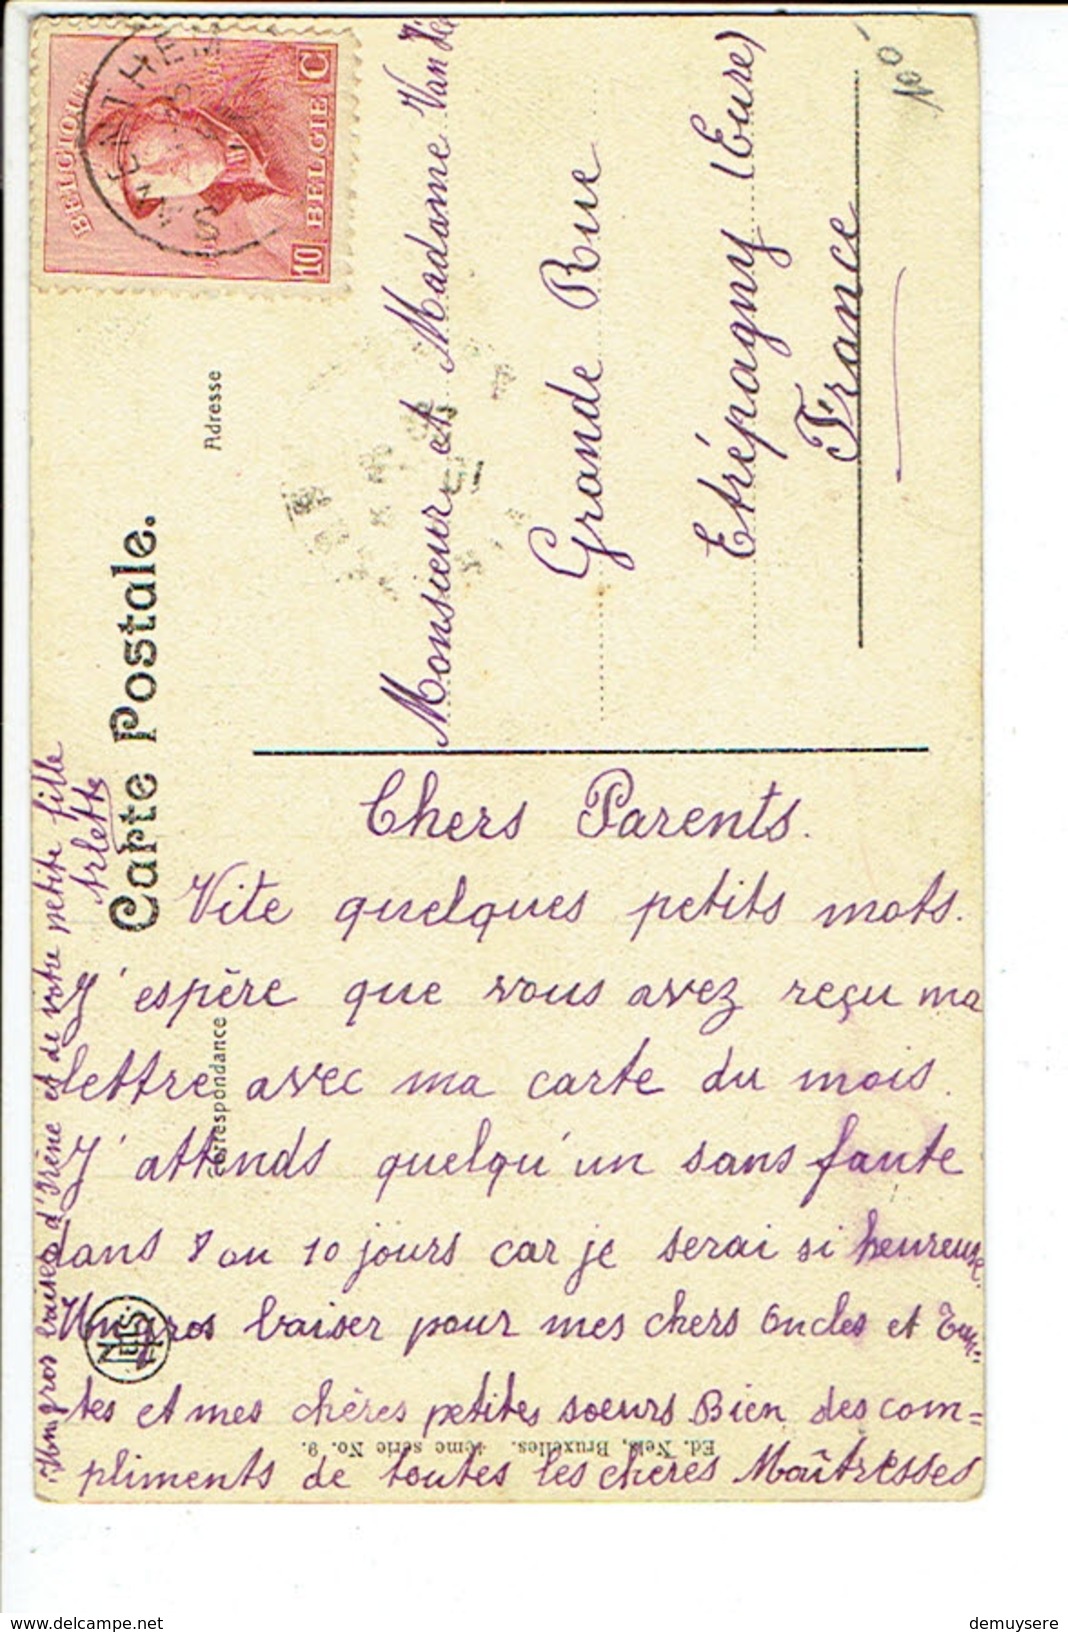 BELGIQUE
10 BELGIE C
Carte Postale.
Adresse
Correspondance
Monsieur et Madame
Grande Rue
Etrépagny (Eure)
France
Chers Parents.
Vite quelques petits mots.
J'espère que vous avez reçu ma
lettre avec ma carte du mois.
J'attends quelqu'un sans faute
dans 8 ou 10 jours car je serai si heureuse.
Un gros baiser pour mes chers Oncles et Tan-
tes et mes chères petites soeurs Bien des com=
pliments de toutes les chères Maîtresses
Un gros baiser d'Irène et de votre petite fille
Arlette
NELS
Ed. Nels, Bruxelles. 4eme série No. 9.
www.delcampe.net
demuysere